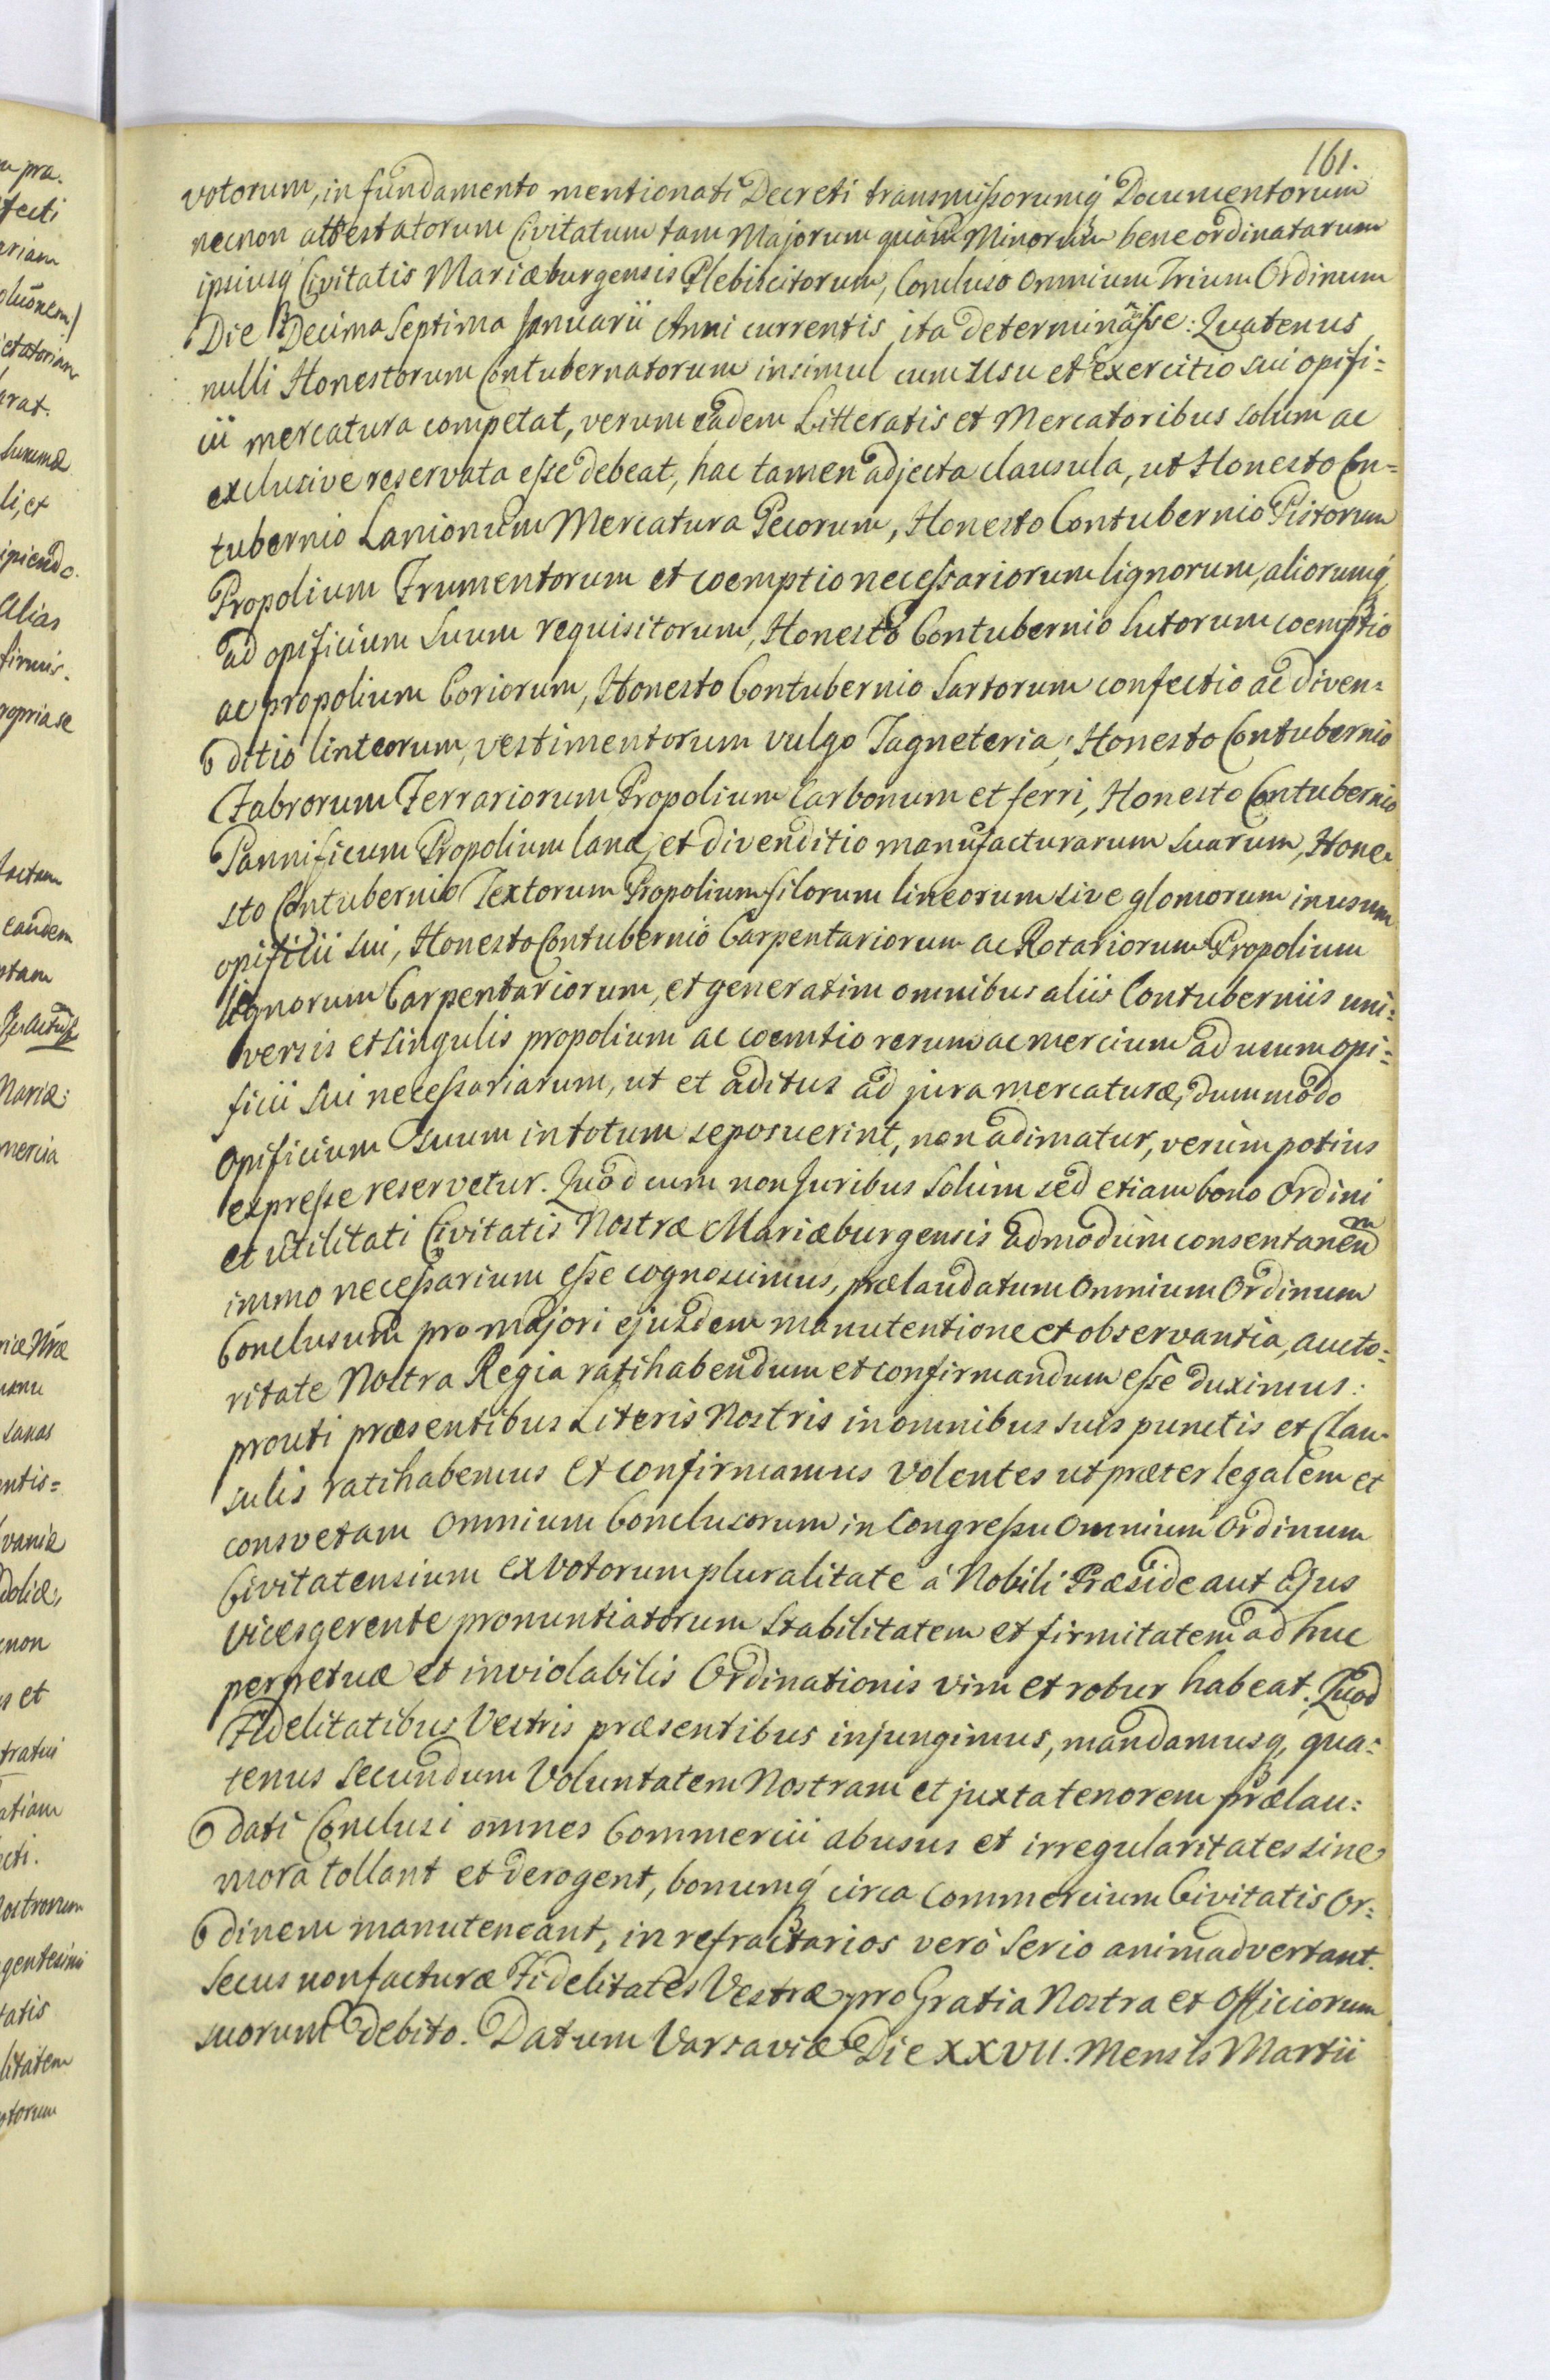 161.
votorum, in fundamento mentionati Decreti transmissorumq́ Documentorum
necnon attestatorum Civitatum tam Majorum quàm Minorum bene ordinatarum
ipsiusq́ Civitatis Mariæburgensis Plebiscitorum, Concluso omnium Trium Ordinum
Die Decima Septima Januarii Anni currentis ita determinâsse: Quatenus
nulli Honestorum Contubernatorum insimul cum usu et exercitio sui opifi=
cii mercatura competat, verum eadem Litteratis et Mercatoribus solum ac
exclusive reservata esse debeat, hac tamen adjecta clausula, ut Honesto Con=
tubernio Lanionum Mercatura Pecorum, Honesto Contubernio Pistorum
Propolium Frumentorum et coemptio necessariorum lignorum, aliorumq́
ad opificium suum requisitorum, Honesto Contubernio Sutorum coemptio
ac propolium Coriorum, Honesto Contubernio Sartorum confectio ac diven=
ditio linteorum, vestimentorum vulgo Tagneteria, Honesto Contubernio
Fabrorum Ferrariorum Propolium Carbonum et ferri, Honesto Contubernio
Pannificum Propolium lanæ, et divenditio manufacturarum suarum, Hone
sto Contubernio Textorum Propolium filorum lineorum sive glomorum in usum
opificii sui, Honesto Contubernio Carpentariorum ac Rotariorum Propolium
lignorum Carpentariorum, et generatim omnibus aliis Contuberniis uni=
versis et singulis propolium ac coemtio rerum ac mercium ad usum opi=
ficii sui necessariarum, ut et aditus ad jura mercaturæ, dummodo
opificium suum in totum seposuerint, non adimatur, verùm potius
expresse reservetur. Quod cum non Juribus solùm sed etiam bono ordini
et utilitati Civitatis Nostræ Mariæburgensis admodùm consentaneum
immo necessarium esse cognoscimus, prælaudatum omnium Ordinum
Conclusum pro majori ejusdem manutentione et observantia, aucto=
ritate Nostra Regia ratihabendum et confirmandum esse duximus:
prouti præsentibus Literis Nostris in omnibus suis punctis et Clau=
sulis ratihabemus et confirmamus Volentes ut præter legalem et
consvetam omnium Conclusorum in Congressu omnium Ordinum
Civitatensium ex votorum pluralitate á Nobili Præside aut ejus
vicesgerente pronuntiatorum stabilitatem et firmitatem ad huc
perpetuæ et inviolabilis Ordinationis vim et robur habeat. Quod
Fidelitatibus Vestris præsentibus injungimus, mandamusq, qua=
tenus secundum Voluntatem Nostram et juxta tenorem prælau=
dati Conclusi omnes Commercii abusus et irregularitates sine
mora tollant et derogent, bonumq́ circa Commercium Civitatis Or=
dinem manuteneant, in refractarios verò serio animadvertant.
Secus non facturæ Fidelitates Vestræ pro Gratia Nostra et Officiorum
suorum debito. Datum Varsaviæ Die XXVII. Mensis Martii